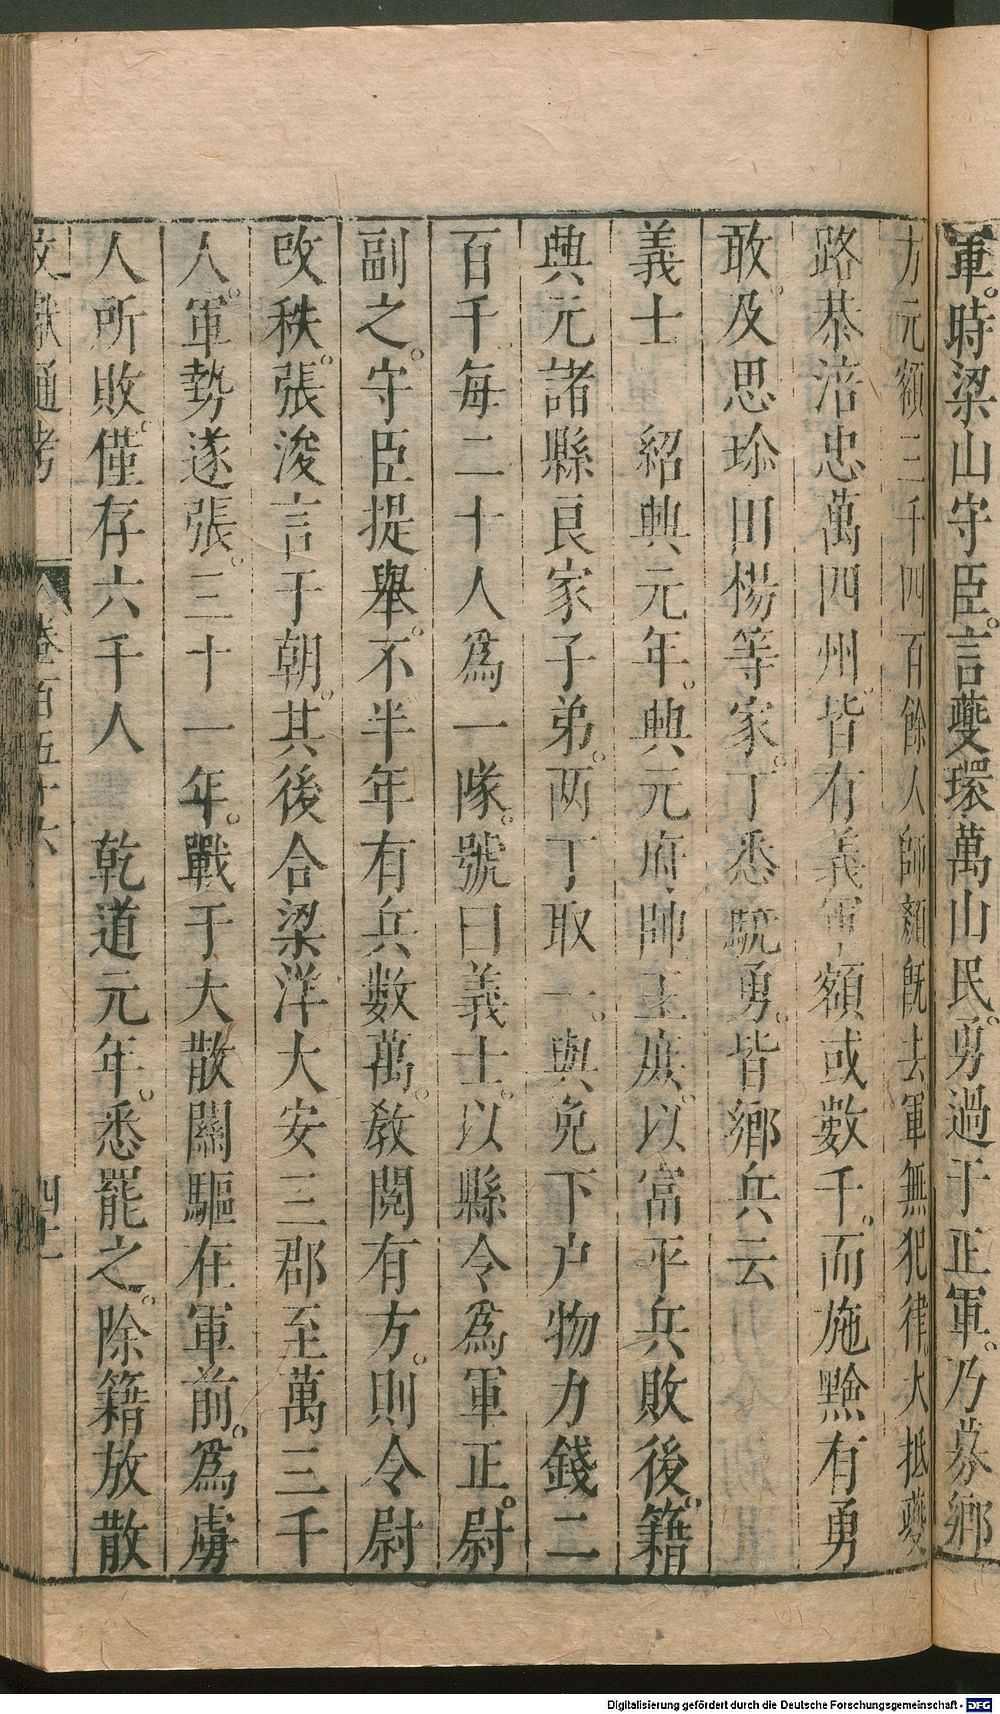 軍。時梁山守臣。言夔環萬山民。勇過于正軍。乃募鄉
方元額三千四百餘人師顏旣去軍無犯律。大抵夔
路恭涪忠萬四州。皆有義軍額或數千。而施黔有勇
敢。及思珍田楊等家。丁悉驍勇。皆鄉兵云
義士　紹興元年。興元府帥王庶。以富平兵敗後。籍
興元諸縣良家子弟。兩丁取一。與免下户物力錢二
百千每二十人爲一隊。號曰義士。以縣令爲軍正。尉
副之。守臣提舉。不半年有兵數萬。教閱有方。則令尉
改秩。張浚言于朝。其後合梁洋大安三郡至萬三千
人。軍勢遂張。三十一年。戰于大散關驅在軍前。爲虜
人所敗。僅存六千人　乾道元年。悉罷之。除籍放散
文獻通考　卷百五十六　四十一
Digitalisierung gefördert durch die Deutsche Forschungsgemeinschaft - DFG